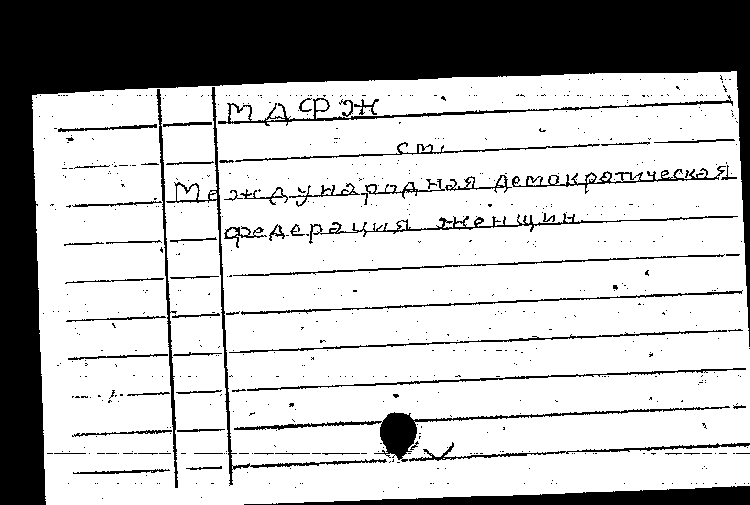 МДФЖ
см.
Международная демократическая
федерация женщин